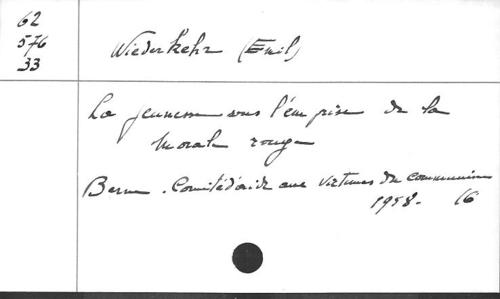 62
576
33
Wiederkehr (Emil)
La jeunesse sous l'emprise de la
morale rouge
Berne. Comité d'aide aux victimes du communisme
1958. 16